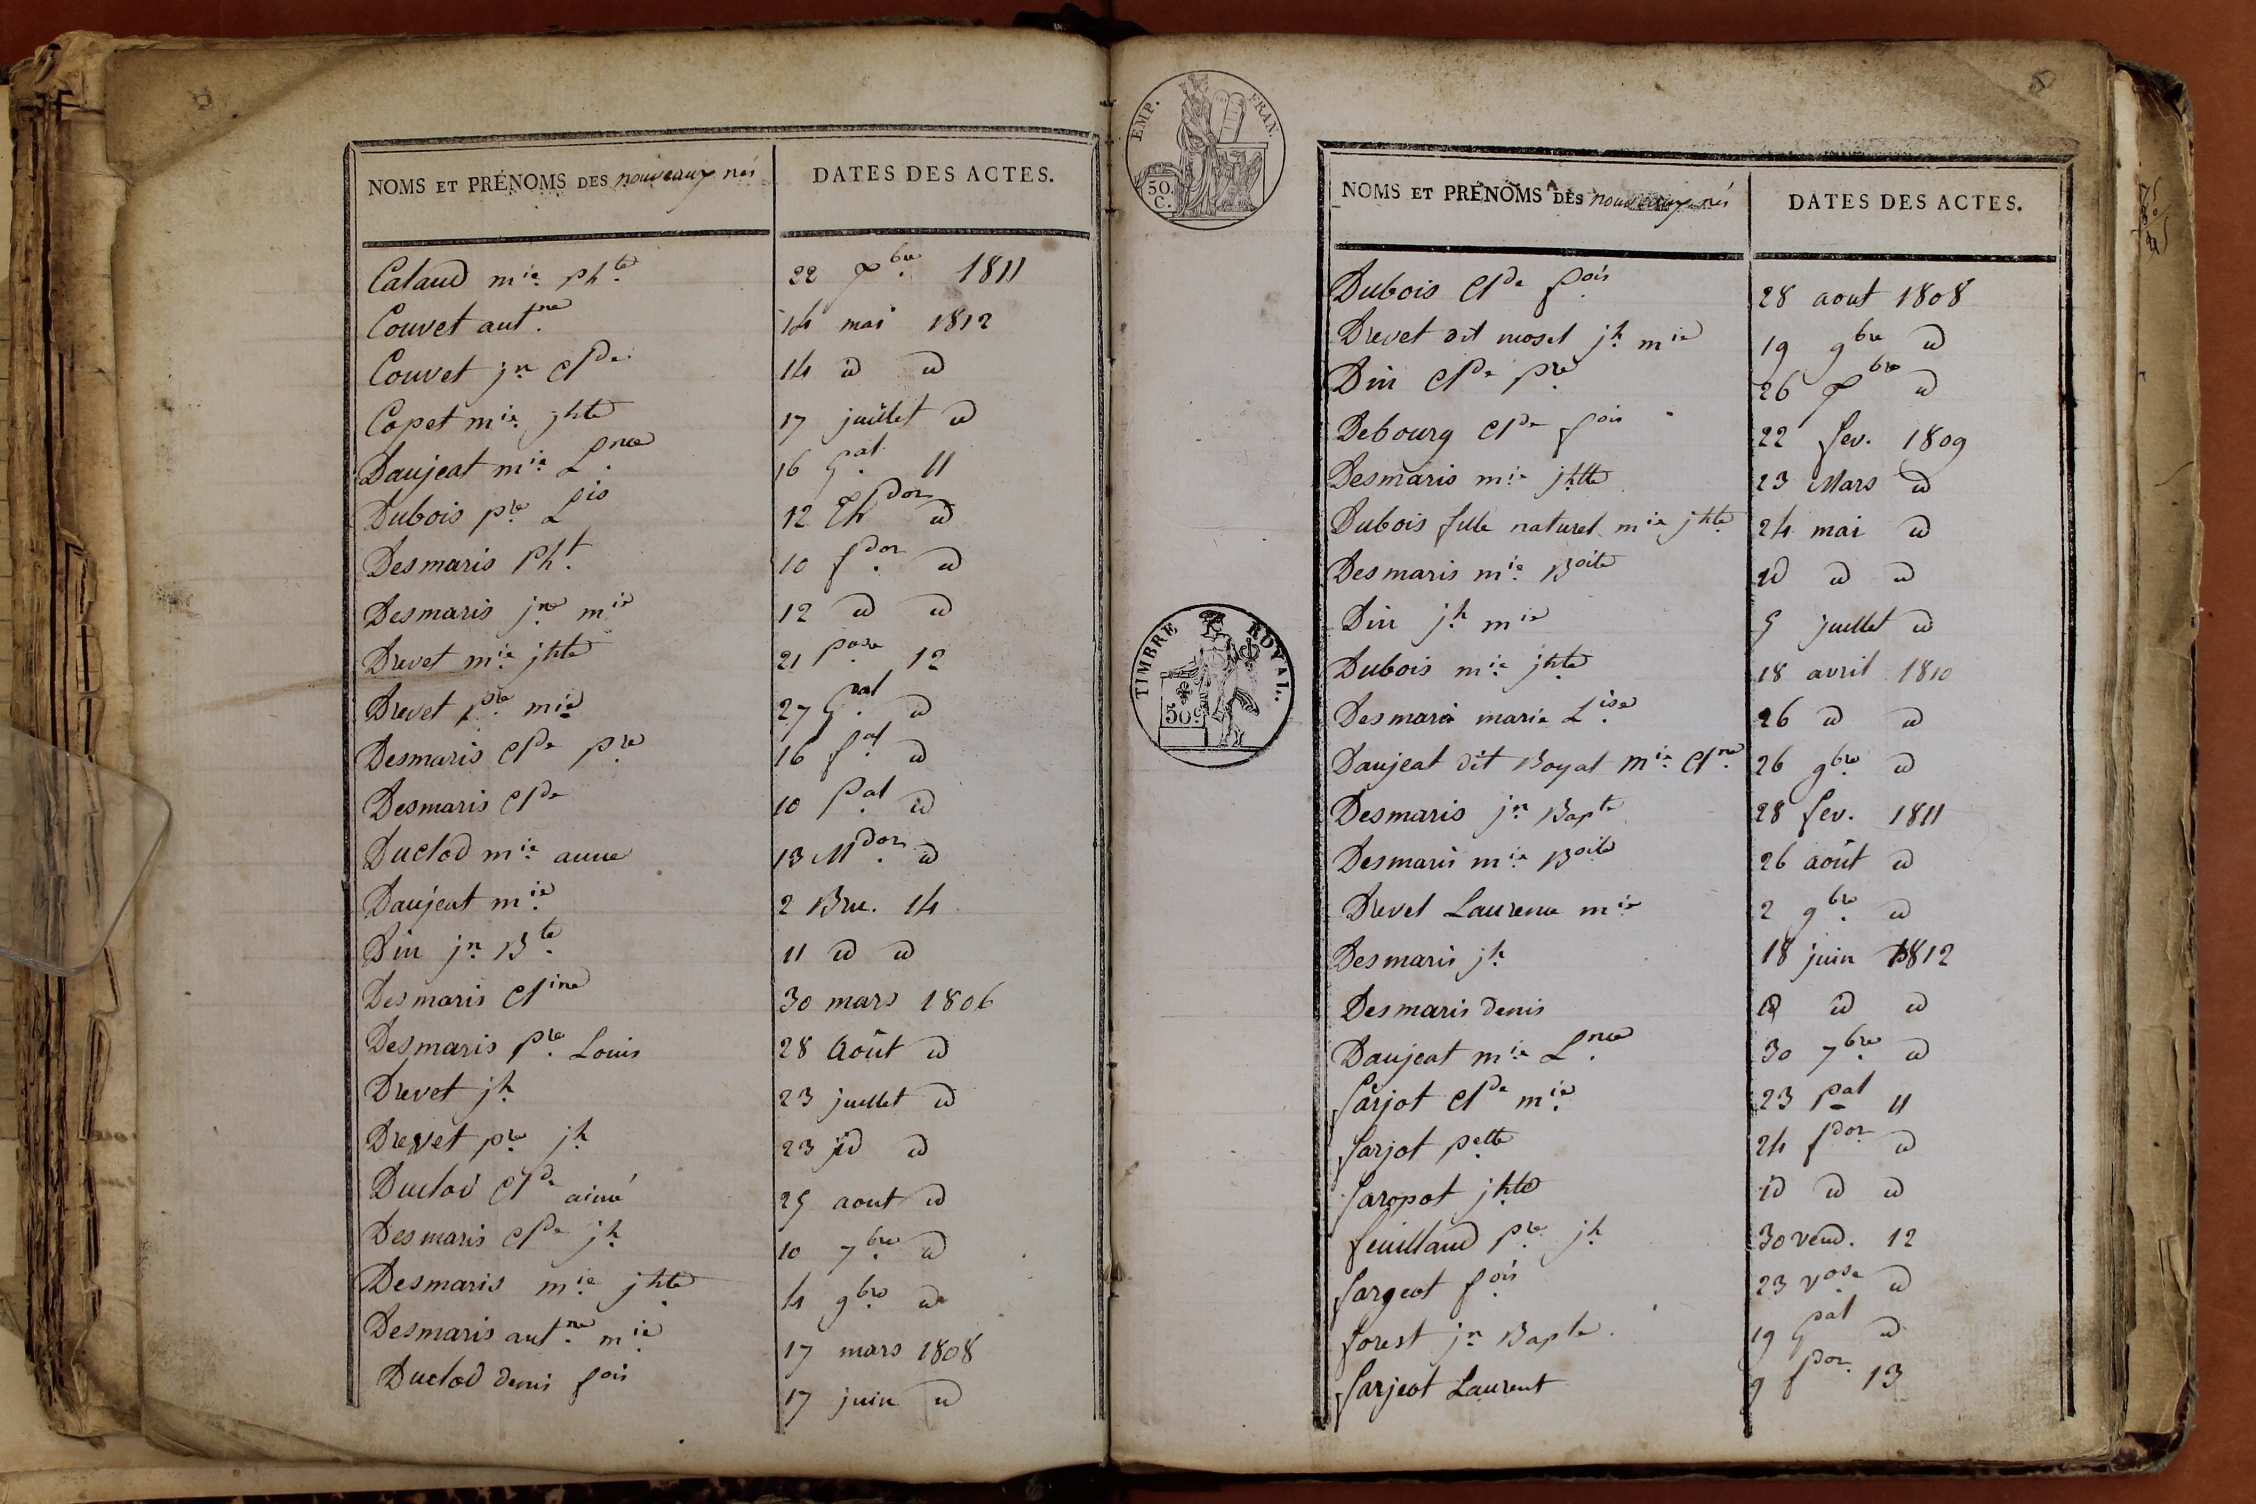 NOMS ET PRÉNOMS DES nouveaux nés
DATES DES ACTES.
Calaud mie. pht.e 22 Xbre 1811
Couvet antne. 14 mai 1812
Couvet jn Clde 14 id id
Copet mie. jhte 17 juillet id
Daujeat mie Lnce. 16 Gal. 11
Dubois pre Lis 12 Thdor id
Desmaris Pht. 10 fdor. id
Desmaris jne mie 12 id id
Drevet mie jhte 21 pose 12
Drevet pre mie 27 Gal. id
Desmaris Clde pre 16 fal id
Desmaris Clde 10 Pal id
Duclod mie. anne 13 Mdor. id
Daujeat mie. 2 Bru. 14
Din jn Bte. 11 id id
Desmaris Cline 30 mars 1806
Desmaris pre. Louis 28 Août id
Drevet jh. 23 juillet id
Drevet pre jh 23 id id
Duclod Clde aimé 25 aout id
Desmaris Clde jh 10 7bre. id
Desmaris mie jhte 4 9bre. id
Desmaris antne. mie. 17 mars 1808
Duclod denis fois 17 juin id
EMP. FRAN.
50. C.
TIMBRE ROYAL.
50c
NOMS ET PRÉNOMS DES nouveaux nés
DATES DES ACTES.
Dubois Clde fois 28 aout 1808
Drevet dit mosel jh. mie 19 9bre id
Din Clde pre 26 Xbre id
Debourg Clde fois 22 fev. 1809
Desmaris mie jhtte 23 Mars id
Dubois fille naturel mie jhte 24 mai id
Desmaris mie. Boite id id id
Din jh. mie 5 juillet id
Dubois mie. jhte 18 avril 1810
Desmaris marie Lise. 26 id id
Daujeat dit Boyat mie. Clne. 26 9bre. id
Desmaris jn Bapte 28 fev. 1811
Desmaris mie Boite 26 août id
Drevet Laurence mie 2 9bre. id
Desmaris jh. 18 juin 1812
Desmaris denis id id id
Daujeat mie. Lnce. 30 7bre. id
farjot Clde mie. 23 pal 11
farjot pette 24 fdor. id
faropot jhte id id id
feuilland pre. jh 30 vend. 12
fargeot fois 23 vose. id
forest jn Bapte. 19 Gal id
farjeot Laurent 9 fdor. 13